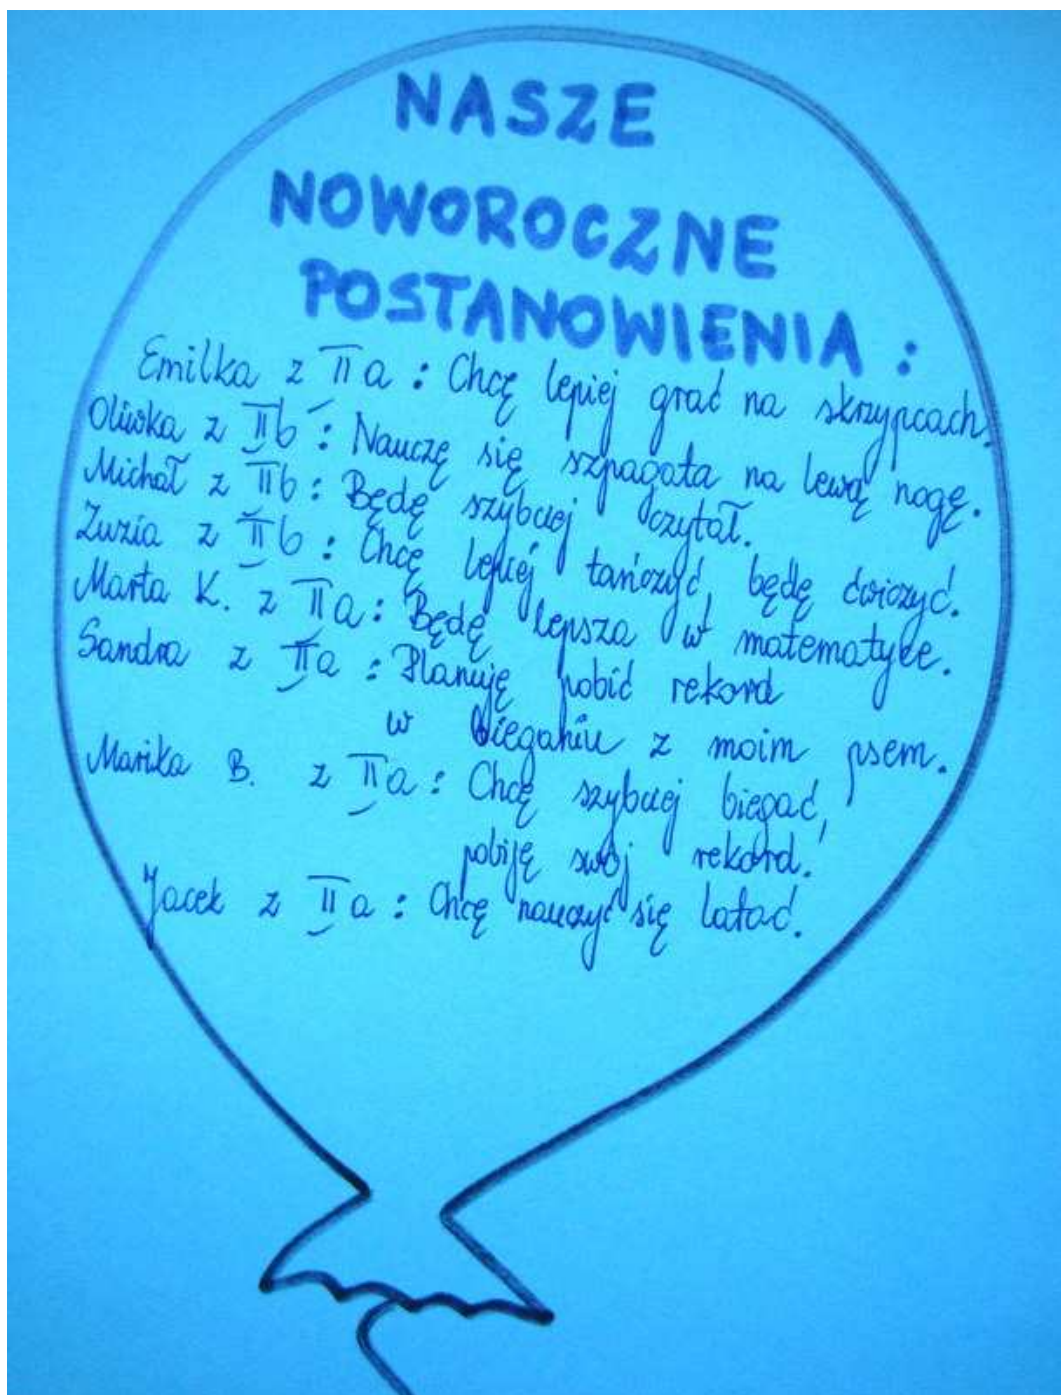 NASZE
NOWOROCZNE
POSTANOWIENIA :
Emilka z II a : Chcę lepiej grać na skrzypcach.
Oliwka z II b : Nauczę się szpagata na lewą nogę.
Michał z II b : Będę szybciej czytał.
Zuzia z II b : Chcę lepiej tańczyć, będę ćwiczyć.
Marta K. z II a : Będę lepsza w matematyce.
Sandra z II a : Planuję pobić rekord
w bieganiu z moim psem.
Marika B. z II a : Chcę szybciej biegać,
pobiję swój rekord.
Jacek z II a : Chcę nauczyć się latać.